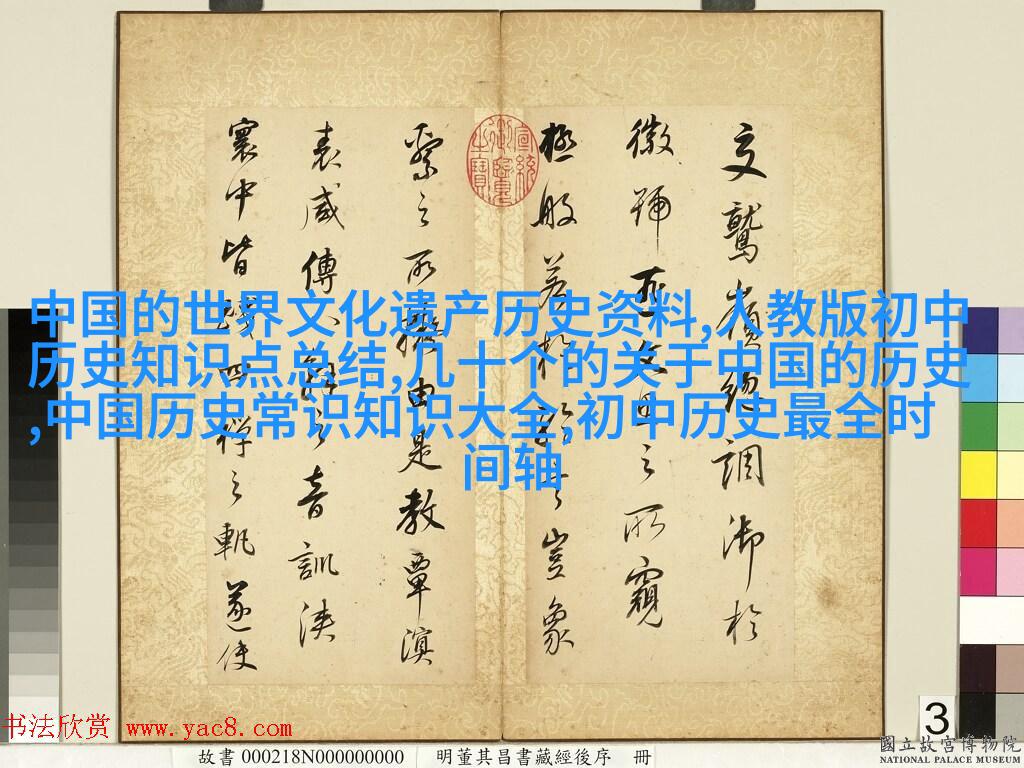 中国的世界文化遗产历史资料,人教版初中
历史知识点总结,几十个的关于中国的历史
,中国历史常识知识大全,初中历史最全时
间轴
鷲嶺總調御於
徽號之所窺
極般若豈象
繄之所擬由是教覃溟
表咸傳八解之音訓浹
寰中皆踐四禪之軌遂使
3
书法欣赏 www.yac8.com
故書 000218N000000000
明董其昌書藏經後序 冊
國立故宮博物院
NATIONAL PALACE MUSEUM